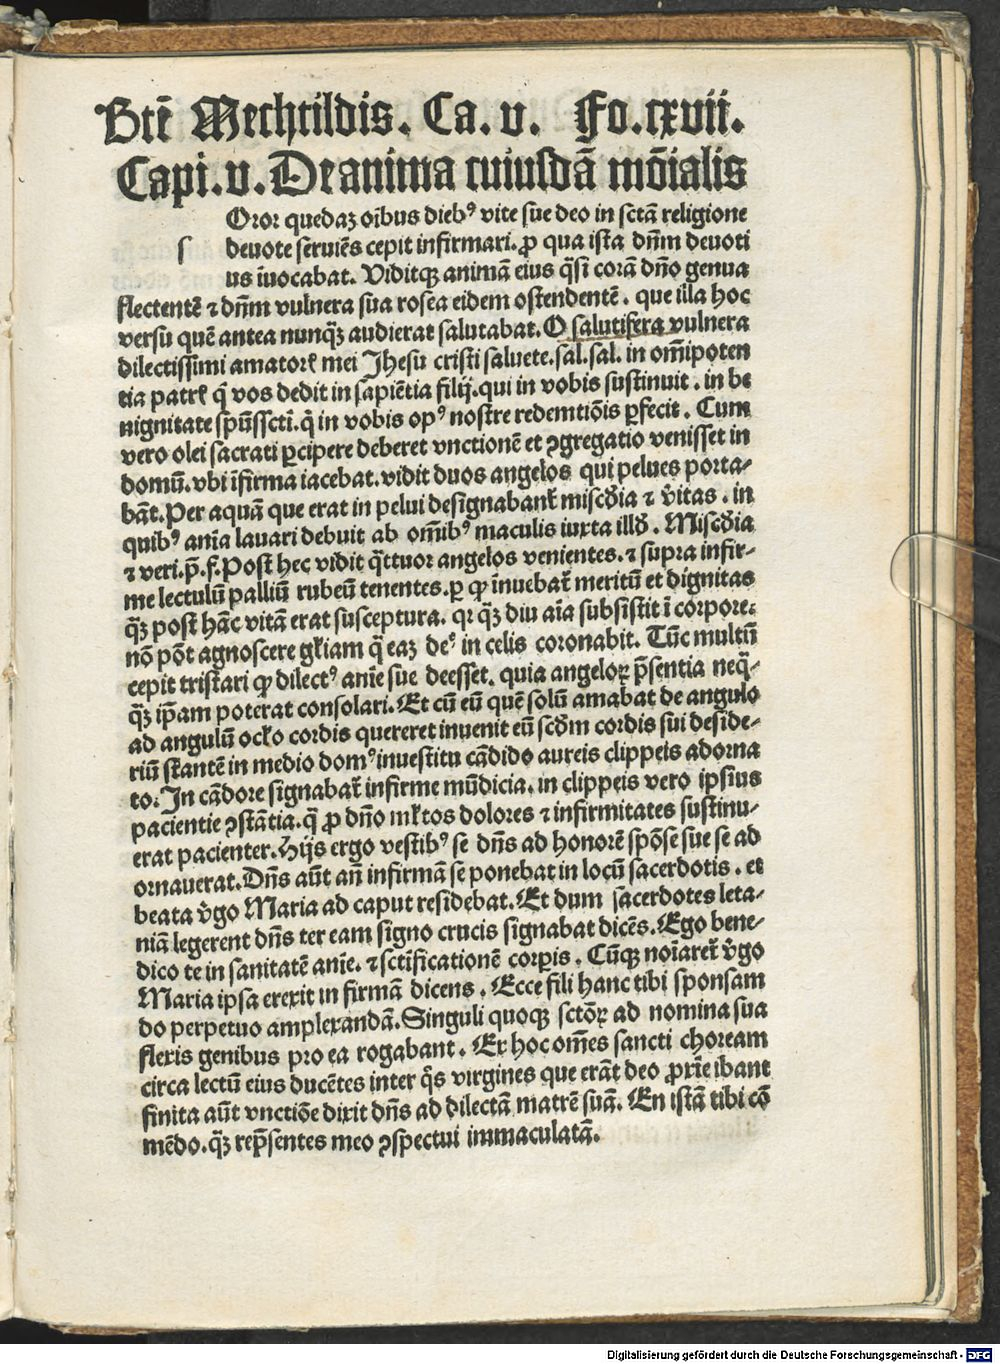 Btē Mechtildis. Ca. v. Fo. cxvii.
Capi. v. De anima cuiusdā mōialis
Oror quedaꝫ oībus diebꝰ vite sue deo in sctā religione
s deuote seruiēs cepit infirmari. ꝓ qua ista dn̄m deuoti
us īuocabat. Viditqꝫ animā eius q̄si corā dn̄o genua
flectentē ⁊ dn̄m vulnera sua rosea eidem ostendentē. que illa hoc
versu quē antea nunqꝫ audierat salutabat. O salutifera vulnera
dilectissimi amatorꝭ mei Jhesu cristi saluete. sal. sal. in om̄ipoten
tia patrꝭ q̄ vos dedit in sapiētia filij. qui in vobis sustinuit. in be
nignitate sp̄ussctī. q̄ in vobis opꝰ nostre redemtiōis ꝑfecit. Cum
vero olei sacrati ꝑcipere deberet vnctionē et ꝯgregatio venisset in
domū. vbi īfirma iacebat. vidit duos angelos qui pelues porta⸗
bāt. Per aquā que erat in pelui designabant᷑ misc̄dia ⁊ v̄itas. in
quibꝰ anīa lauari debuit ab om̄ibꝰ maculis iuxta illd̄. Misc̄dia
⁊ veri. p̄. s. Post hec vidit q̄ttuor angelos venientes. ⁊ supra infir⸗
me lectulū palliū rubeū tenentes. ꝑ qꝫ īnuebat᷑ meritū et dignitas
q̄ꝫ post hāc vitā erat susceptura. qꝛ q̄ꝫ diu aīa subsistit ī corpore.
nō pōt agnoscere gl̄iam q̄ eaꝫ deꝰ in celis coronabit. Tūc multū
cepit tristari qꝫ dilectꝰ anīe sue deesset. quia angeloꝝ p̄sentia neq̄⸗
q̄ꝫ ip̄am poterat consolari. Et cū eū quē solū amabat de angulo
ad angulū ocl̄o cordis quereret inuenit eū scd̄m cordis sui deside⸗
riū stantē in medio domꝰ inuestitu cādido aureis clippeis adorna
to. In cādore signabat᷑ infirme mūdicia. in clippeis vero ipsius
pacientie ꝯstātia. q̄ ꝓ dn̄o ml̄tos dolores ⁊ infirmitates sustinu⸗
erat pacienter. Hijs ergo vestibꝰ se dn̄s ad honorē spōse sue se ad
ornauerat. Dn̄s aūt an̄ infirmā se ponebat in locū sacerdotis. et
beata v̄go Maria ad caput residebat. Et dum sacerdotes leta⸗
niā legerent dn̄s ter eam signo crucis signabat dicēs. Ego bene⸗
dico te in sanitatē anīe. ⁊ sctīficationē corꝑis. Cūqꝫ noīaret᷑ v̄go
Maria ipsa erexit in firmā dicens. Ecce fili hanc tibi sponsam
do perpetuo amplexandā. Singuli quoqꝫ sctōꝝ ad nomina sua
flexis genibus pro ea rogabant. Ex hoc om̄es sancti choream
circa lectū eius ducētes inter q̄s virgines que erāt deo ꝓxīe ibant
finita aūt vnctiōe dixit dn̄s ad dilectā matrē suā. En istā tibi cō
mēdo. q̄ꝫ rep̄sentes meo ꝯspectui immaculatā.
Digitalisierung gefördert durch die Deutsche Forschungsgemeinschaft - DFG